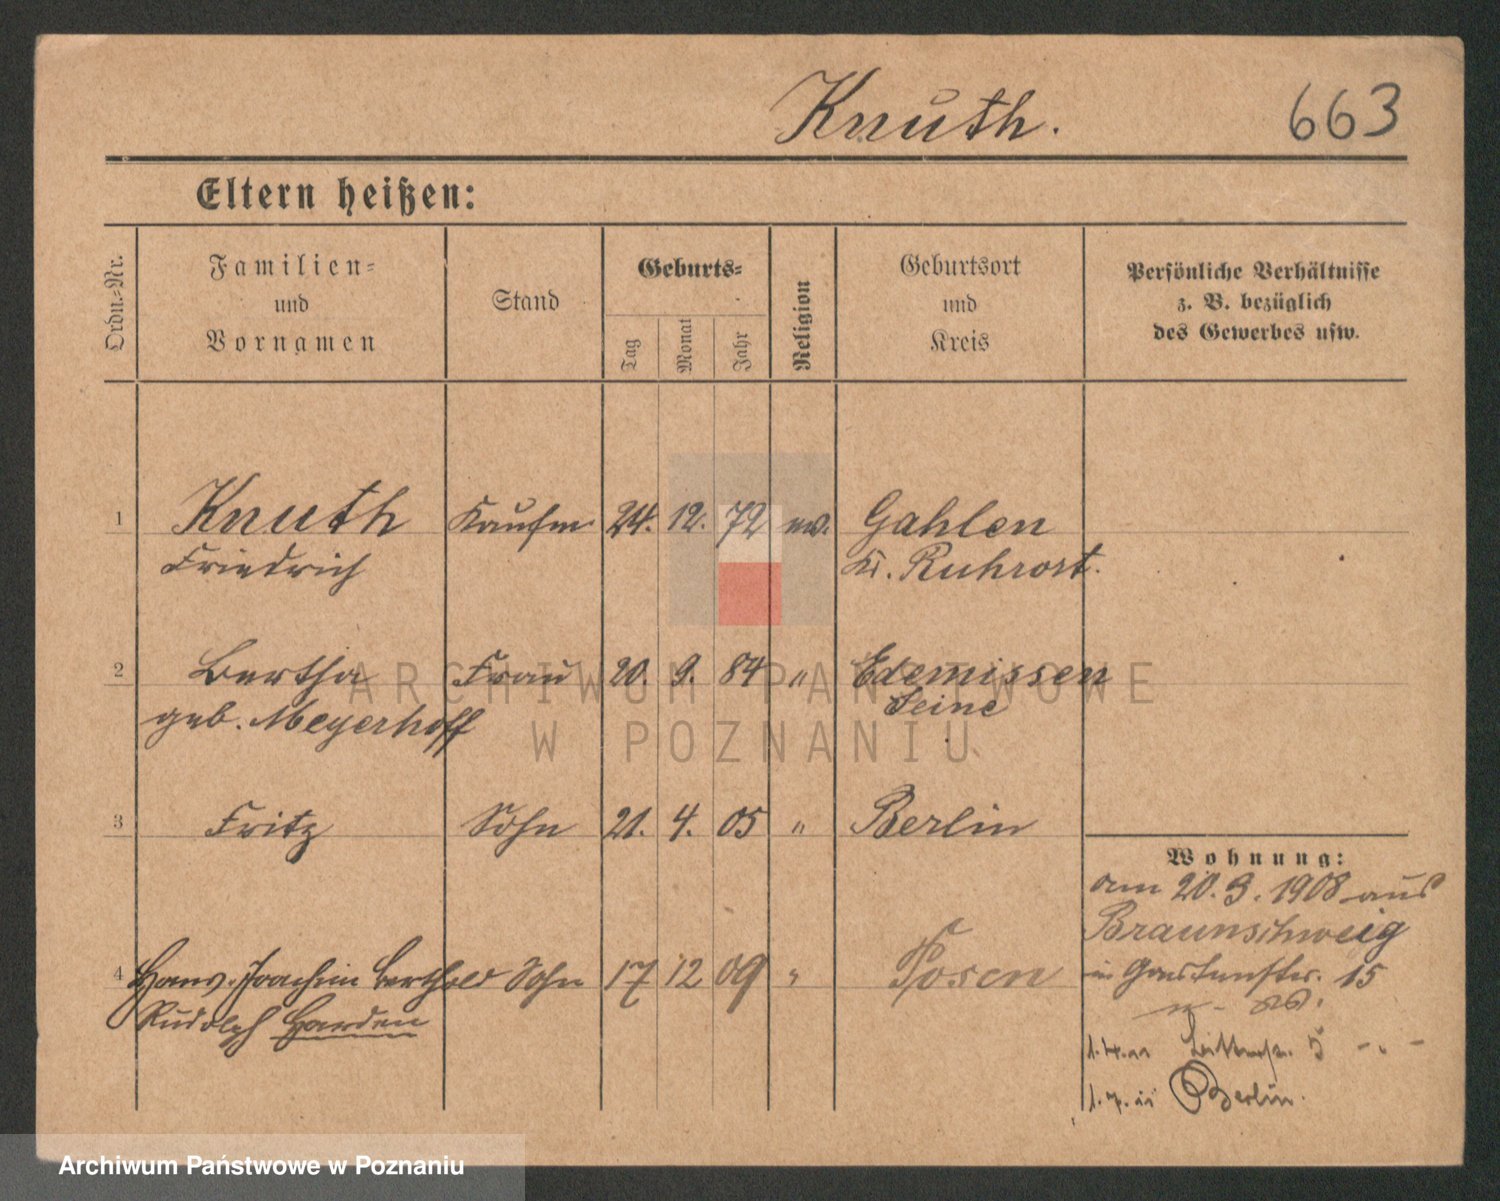 Knuth. 663
Eltern heißen:
Ordn.-Nr.
Familien-
und
Vornamen
Stand
Geburts-
Tag
Monat
Jahr
Religion
Geburtsort
und
Kreis
Persönliche Verhältnisse
z. B. bezüglich
des Gewerbes usw.
1 Knuth Kaufm 24. 12. 72 ev. Gahlen
Friedrich Kr. Ruhrort.
2 Bertha Frau 20. 9. 84 " Edemissen
geb. Meyerhoff Peine
3 Fritz Sohn 21. 4. 05 " Berlin
Wohnung:
am 20. 3. 1908 aus
Braunschweig
4 Hans. Joachim Berthold Sohn 17 12 09 " Posen
in 15
Rudolph Harden
1. 4. 11 5
1. 7. 11 Berlin.
ARCHIWUM PAŃSTWOWE
W POZNANIU
Archiwum Państwowe w Poznaniu